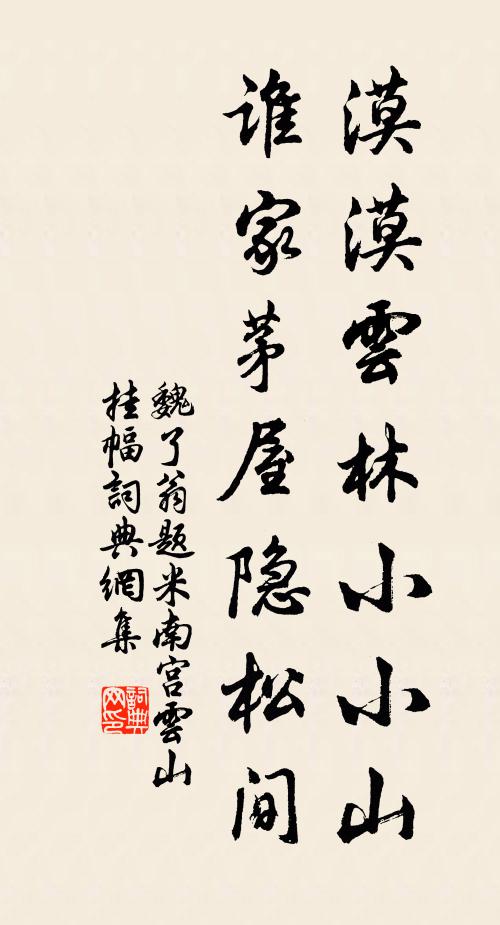 漠漠雲林小小山
谁家茅屋隐松间
魏了翁题米南宫雲山
挂幅詞典網集
詞典网印